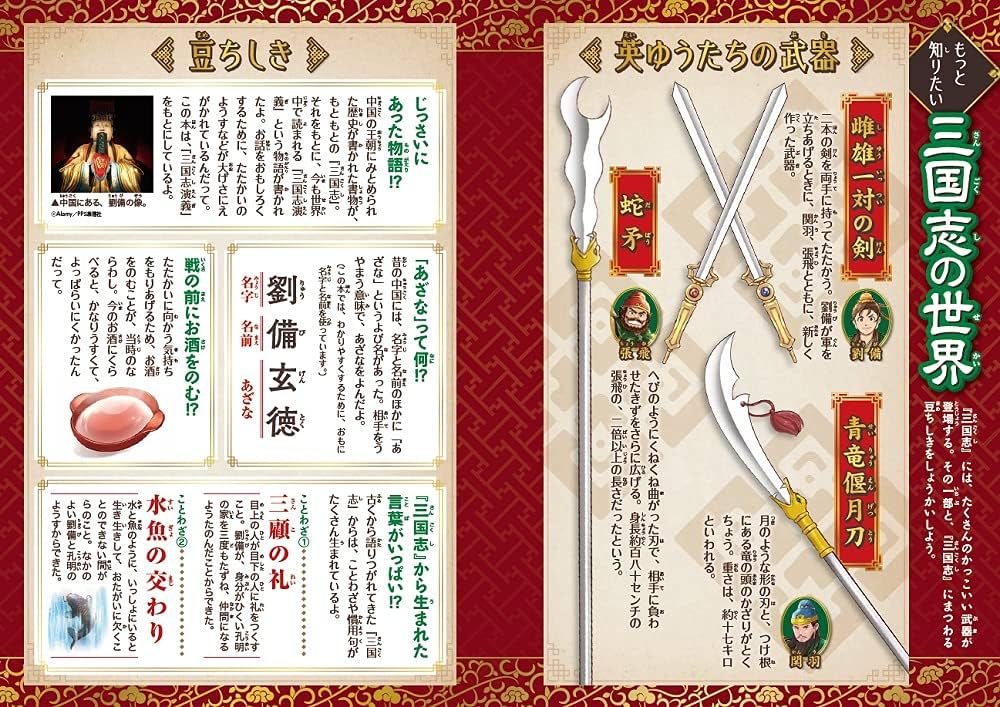 もっと
知りたい
三国志の世界
『三国志』には、たくさんのかっこいい武器が
登場する。その一部と、『三国志』にまつわる
豆ちしきをしょうかいしよう。
英ゆうたちの武器
雌雄一対の剣
二本の剣を両手に持ってたたかう。劉備が軍を
立ちあげるときに、関羽、張飛とともに、新しく
作った武器。
劉備
蛇矛
張飛
へびのようにくねくね曲がった刃で、相手に負わ
せたきずをさらに広げる。身長約百八十センチの
張飛の、二倍以上の長さだったという。
青竜偃月刀
月のような形の刃と、つけ根
にある竜の頭のかざりがとく
ちょう。重さは、約十七キロ
といわれる。
関羽
豆ちしき
じっさいに
あった物語!?
中国の王朝にみとめられ
た歴史が書かれた書物が、
もともとの『三国志』。
それをもとに、今も世界
中で読まれる『三国志演
義』という物語が書かれ
たよ。お話をおもしろく
するために、たたかいの
ようすなどが大げさにえ
がかれているんだって。
この本は、『三国志演義』
をもとにしているよ。
▲中国にある、劉備の像。
©Alamy/PPS通信社
「あざな」って何!?
昔の中国には、名字と名前のほかに「あ
ざな」というよび名があった。相手をう
やまう意味で、あざなをよんだよ。
(この本では、わかりやすくするために、おもに
名字と名前を使っています。)
劉備玄徳
名字
名前
あざな
戦の前にお酒をのむ!?
たたかいに向かう気持ち
をもりあげるため、お酒
をのむことが、当時のな
らわし。今のお酒にくら
べると、かなりうすくて、
よっぱらいにくかったん
だって。
『三国志』から生まれた
言葉がいっぱい!?
古くから語りつがれてきた『三国
志』からは、ことわざや慣用句が
たくさん生まれているよ。
ことわざ①
三顧の礼
目上の人が目下の人に礼をつくす
こと。劉備が、身分がひくい孔明
の家を三度もたずね、仲間になる
ようたのんだことからできた。
ことわざ②
水魚の交わり
水と魚のように、いっしょにいると
生き生きして、おたがいに欠くこ
とのできない間が
らのこと。なかの
よい劉備と孔明の
ようすからできた。